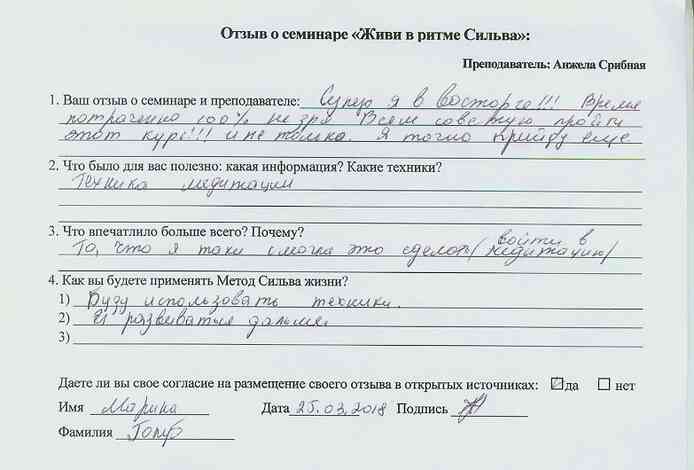 Отзыв о семинаре «Живи в ритме Сильва»:
Преподаватель: Анжела Срибная
1. Ваш отзыв о семинаре и преподавателе: Супер я в восторге!!! Время
потрачено 100% не зря. Всем советую пройти
этот курс!!! и не только. Я точно прийду еще
2. Что было для вас полезно: какая информация? Какие техники?
Техника медитации
3. Что впечатлило больше всего? Почему?
То, что я таки смогла это сделать (войти в медитацию)
4. Как вы будете применять Метод Сильва жизни?
1) Буду использовать техники.
2) И развиваться дальше.
3)
Даете ли вы свое согласие на размещение своего отзыва в открытых источниках: да нет
Имя Марина Дата 25.03.2018 Подпись
Фамилия